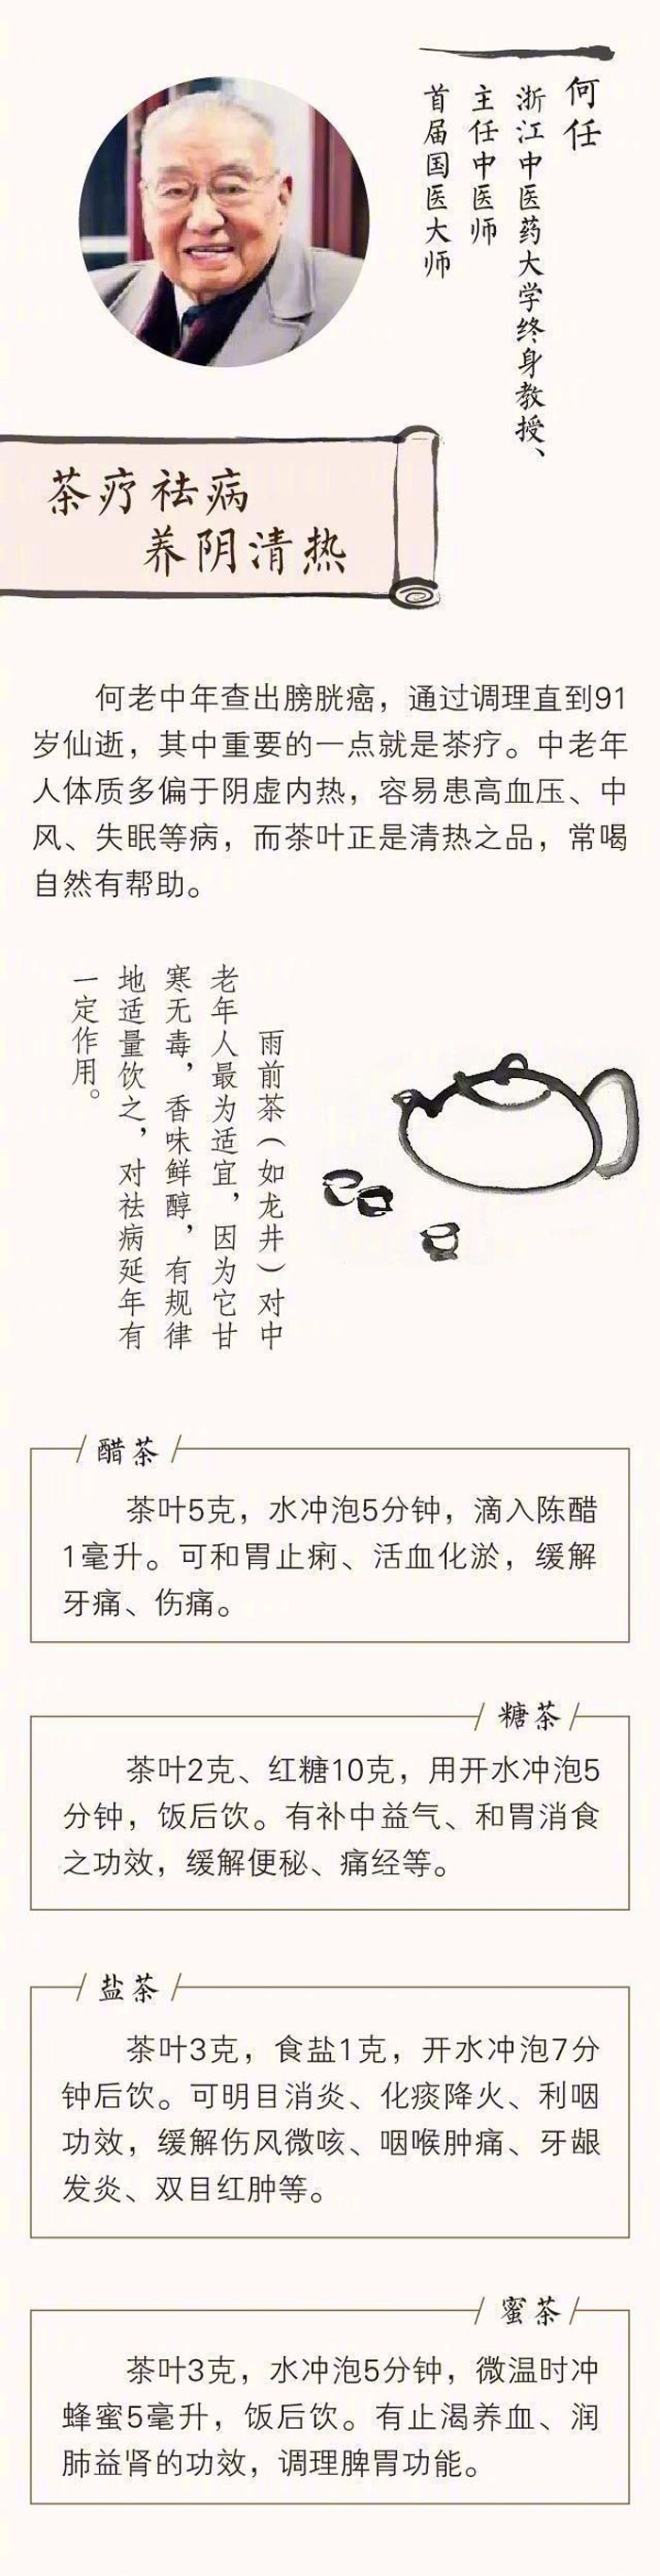 何任
浙江中医药大学终身教授、
主任中医师
首届国医大师
茶疗祛病
养阴清热
何老中年查出膀胱癌，通过调理直到91
岁仙逝，其中重要的一点就是茶疗。中老年
人体质多偏于阴虚内热，容易患高血压、中
风、失眠等病，而茶叶正是清热之品，常喝
自然有帮助。
雨前茶（如龙井）对中
老年人最为适宜，因为它甘
寒无毒，香味鲜醇，有规律
地适量饮之，对祛病延年有
一定作用。
醋茶
茶叶5克，水冲泡5分钟，滴入陈醋
1毫升。可和胃止痢、活血化淤，缓解
牙痛、伤痛。
糖茶
茶叶2克、红糖10克，用开水冲泡5
分钟，饭后饮。有补中益气、和胃消食
之功效，缓解便秘、痛经等。
盐茶
茶叶3克，食盐1克，开水冲泡7分
钟后饮。可明目消炎、化痰降火、利咽
功效，缓解伤风微咳、咽喉肿痛、牙龈
发炎、双目红肿等。
蜜茶
茶叶3克，水冲泡5分钟，微温时冲
蜂蜜5毫升，饭后饮。有止渴养血、润
肺益肾的功效，调理脾胃功能。